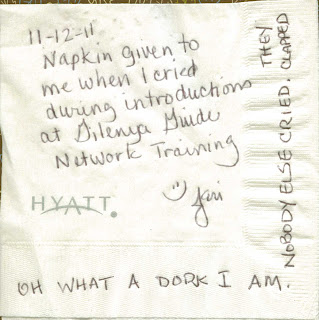 11-12-11
Napkin given to
me when I cried
during introductions
at Gilenya Guide
Network Training
Jeri
HYATT.
OH WHAT A DORK I AM.
NOBODY ELSE CRIED. THEY
CLAPPED